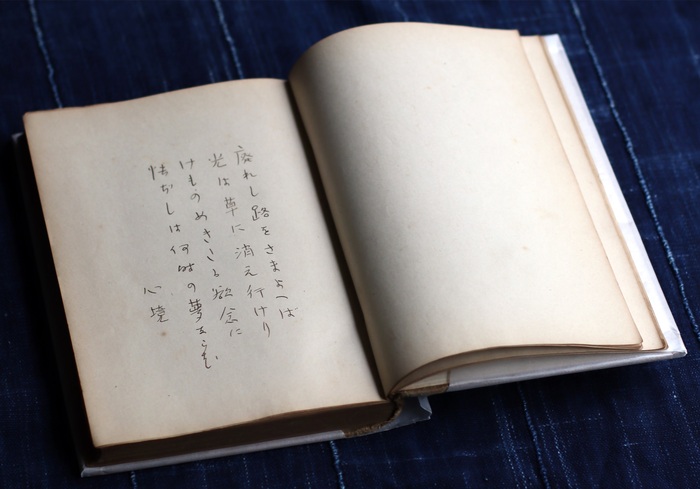 廃れし路をさまよへば
光は草に消え行けり
けものめきたる慾念に
怯ぢしは何時の夢ならむ
心境